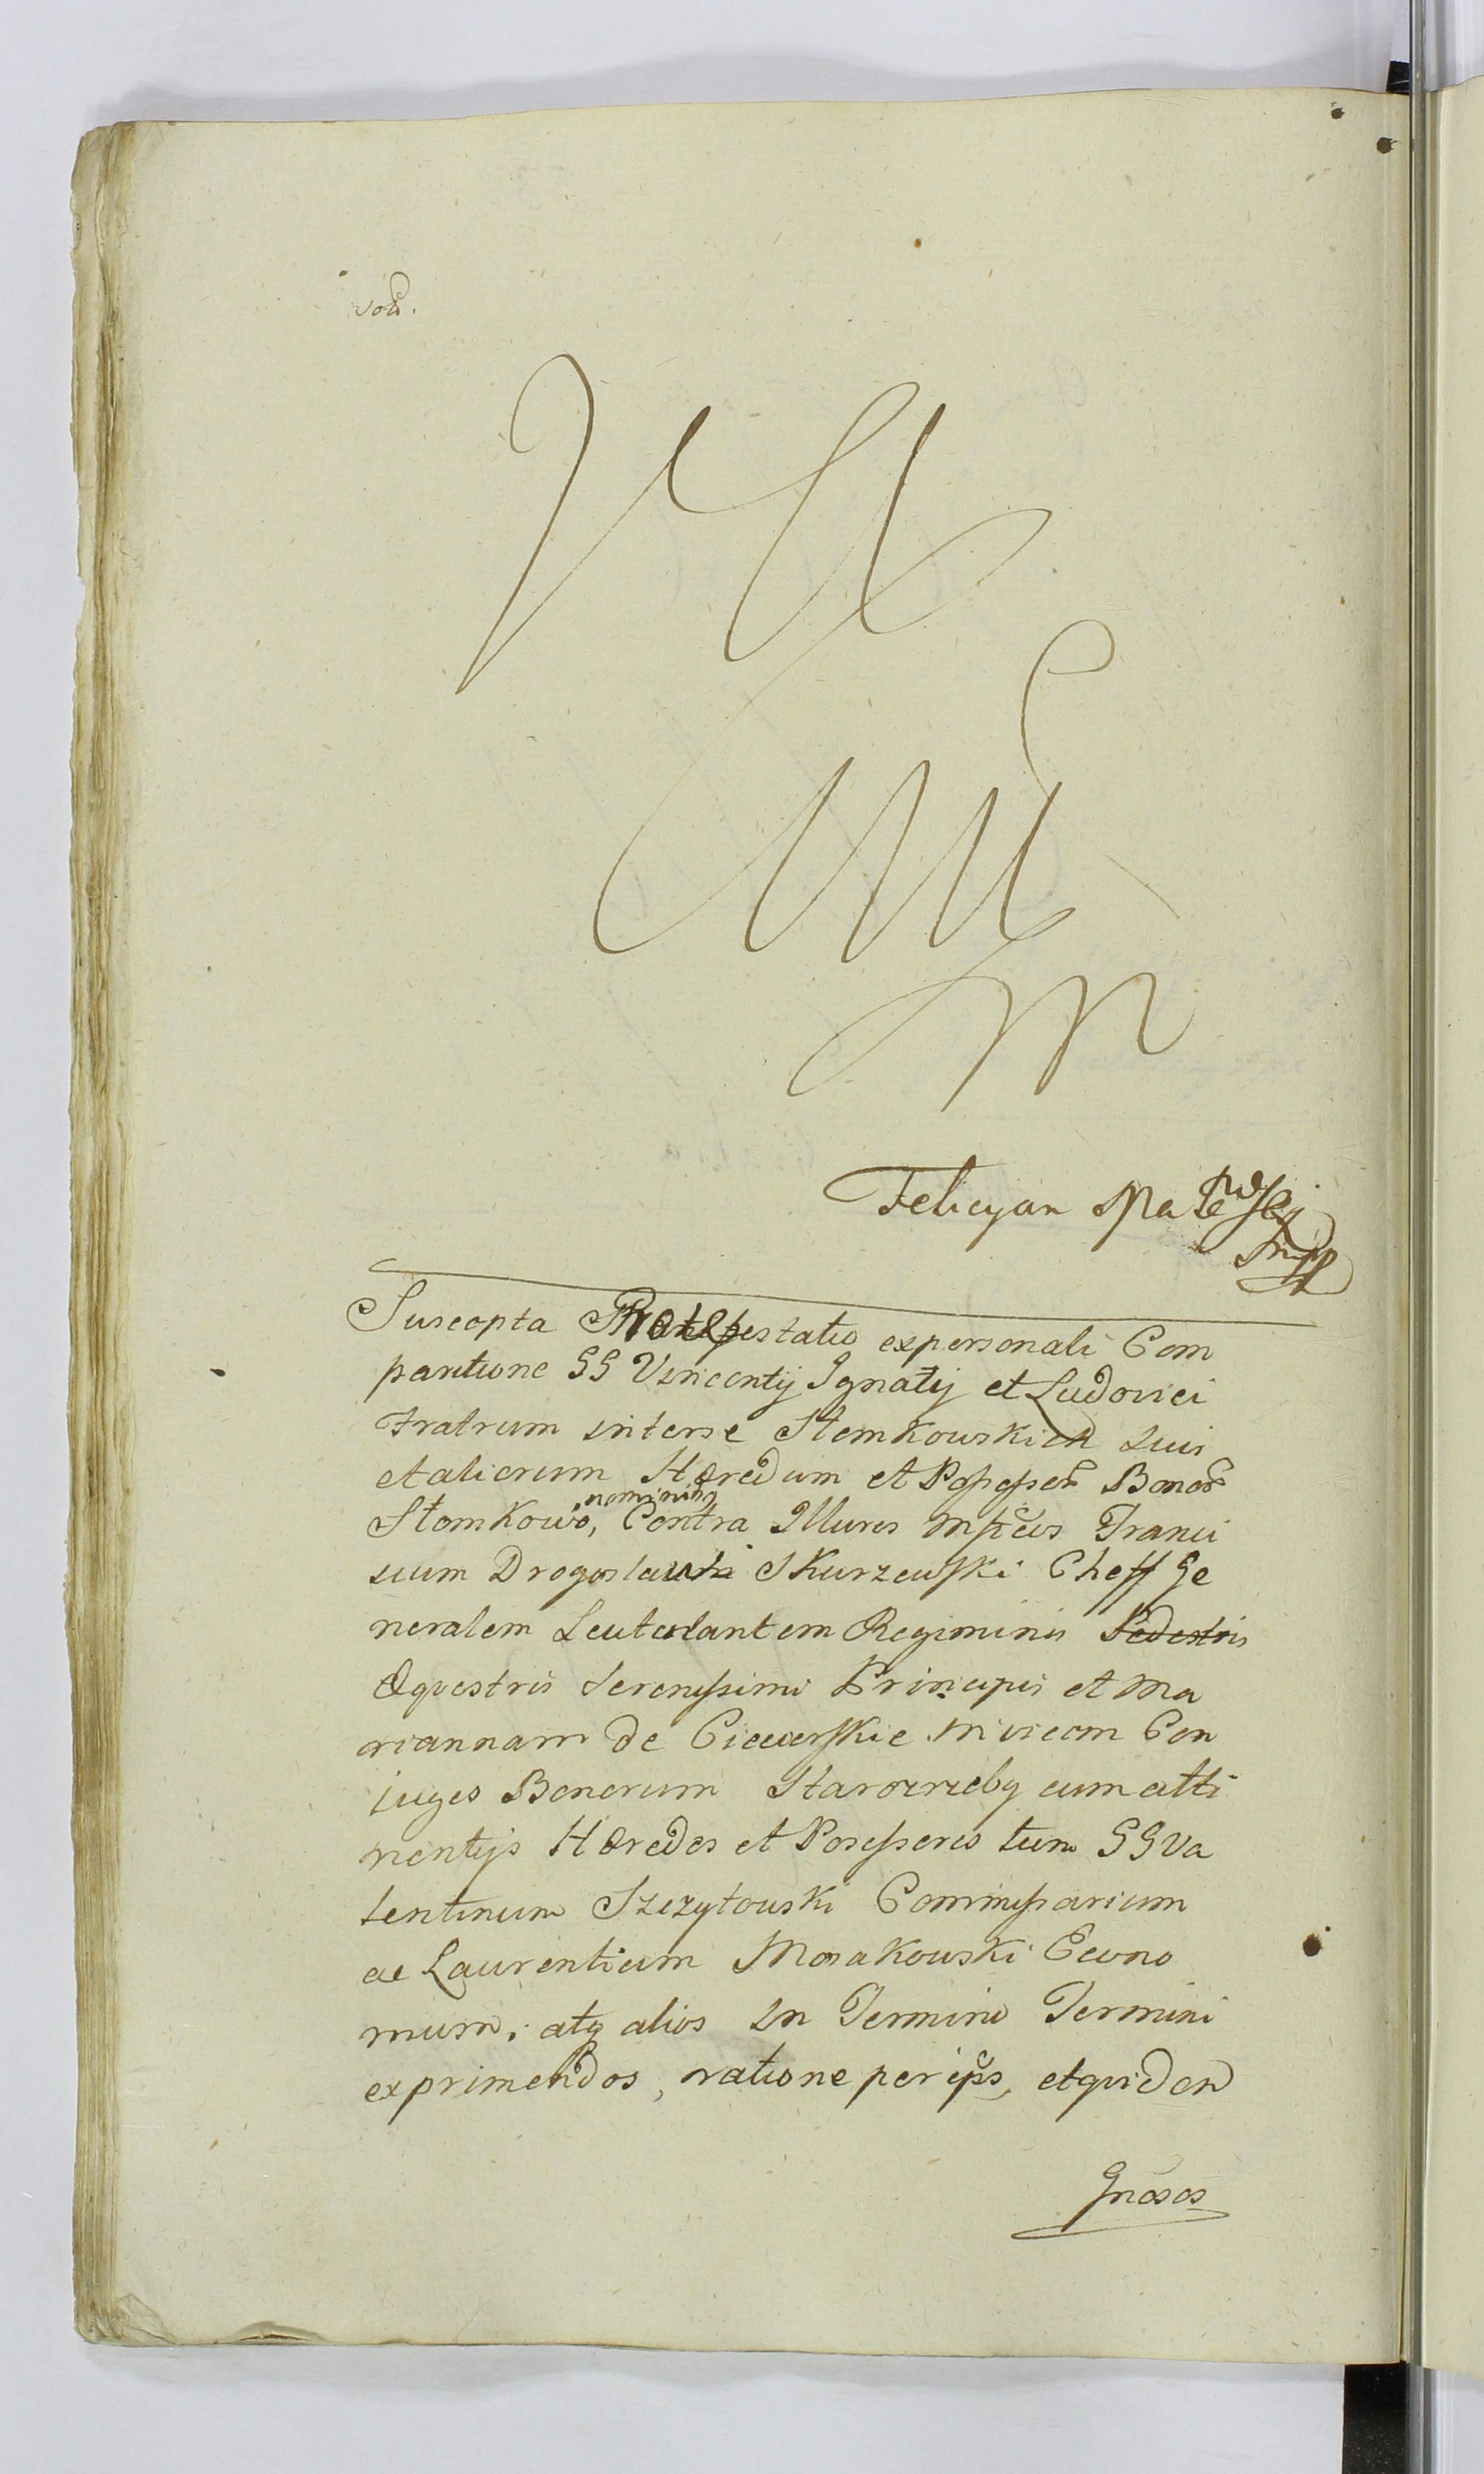 Felicyan
mpp
Suscepta Protestatio ex personali Com
paritione GG Vincentij Ignatij et Ludovici
Fratrum interse Słomkowskich suis
et aliorum Hæredum et Possesser Bonor
Słomkowo, nominibg Contra Illures Mficos Franci
scum Drogosław Skurzewski Cheff Ge
neralem Leutenantem Regiminis Pedestris
Equestris Serenissimi Principis et Ma
riannam de Ciecierskie invicem Con
iuges Bonorum Starozreby cum atti
nentijs Hæredes et Possessores tum GG Va
lentinum Szczytowski Commissarium
ac Laurentium Mosakowski Econo
mum, atq alios in Termino Termini
exprimendos, ratione per ipsos, et quidem
Gnosos